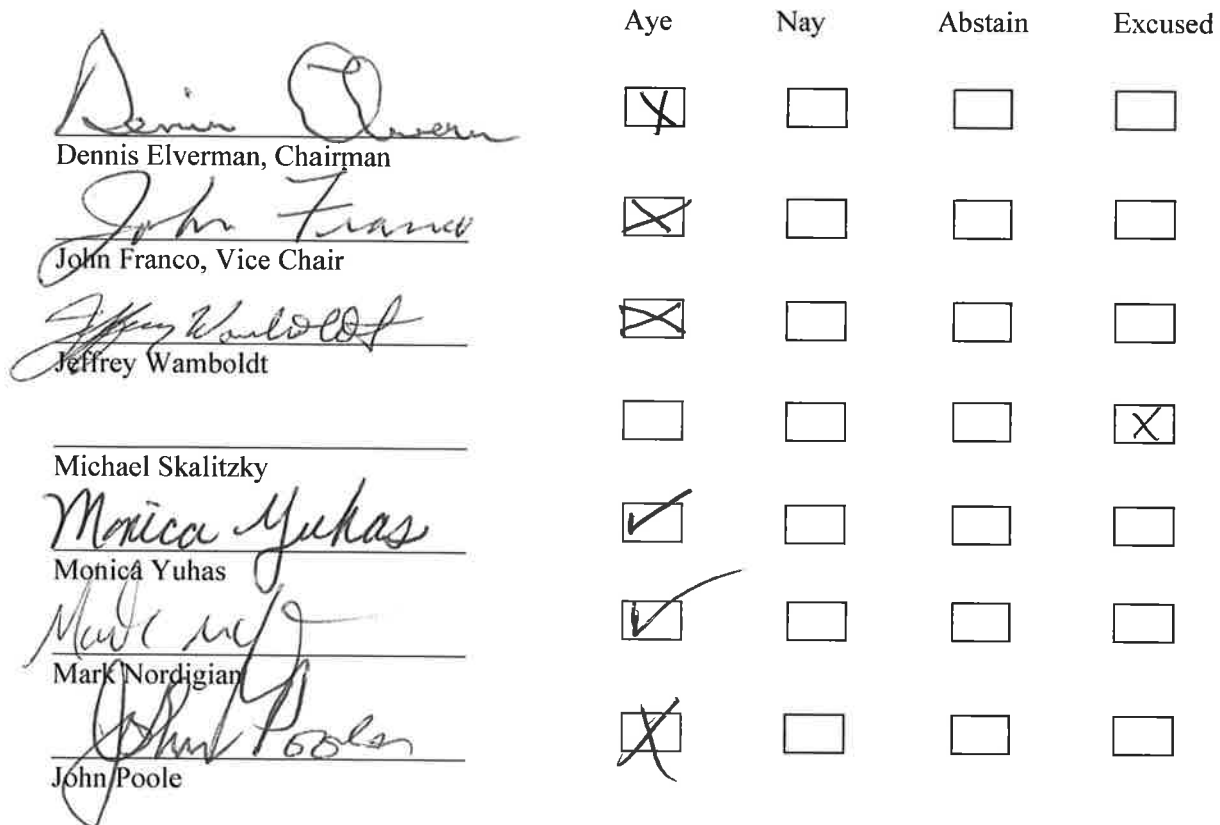 Aye Nay Abstain Excused
Dennis Elverman, Chairman
John Franco
John Franco, Vice Chair
Jeffrey Wamboldt
Jeffrey Wamboldt
Michael Skalitzky
Monica Yuhas
Monica Yuhas
Mark
Mark Nordigian
John Poole
John Poole